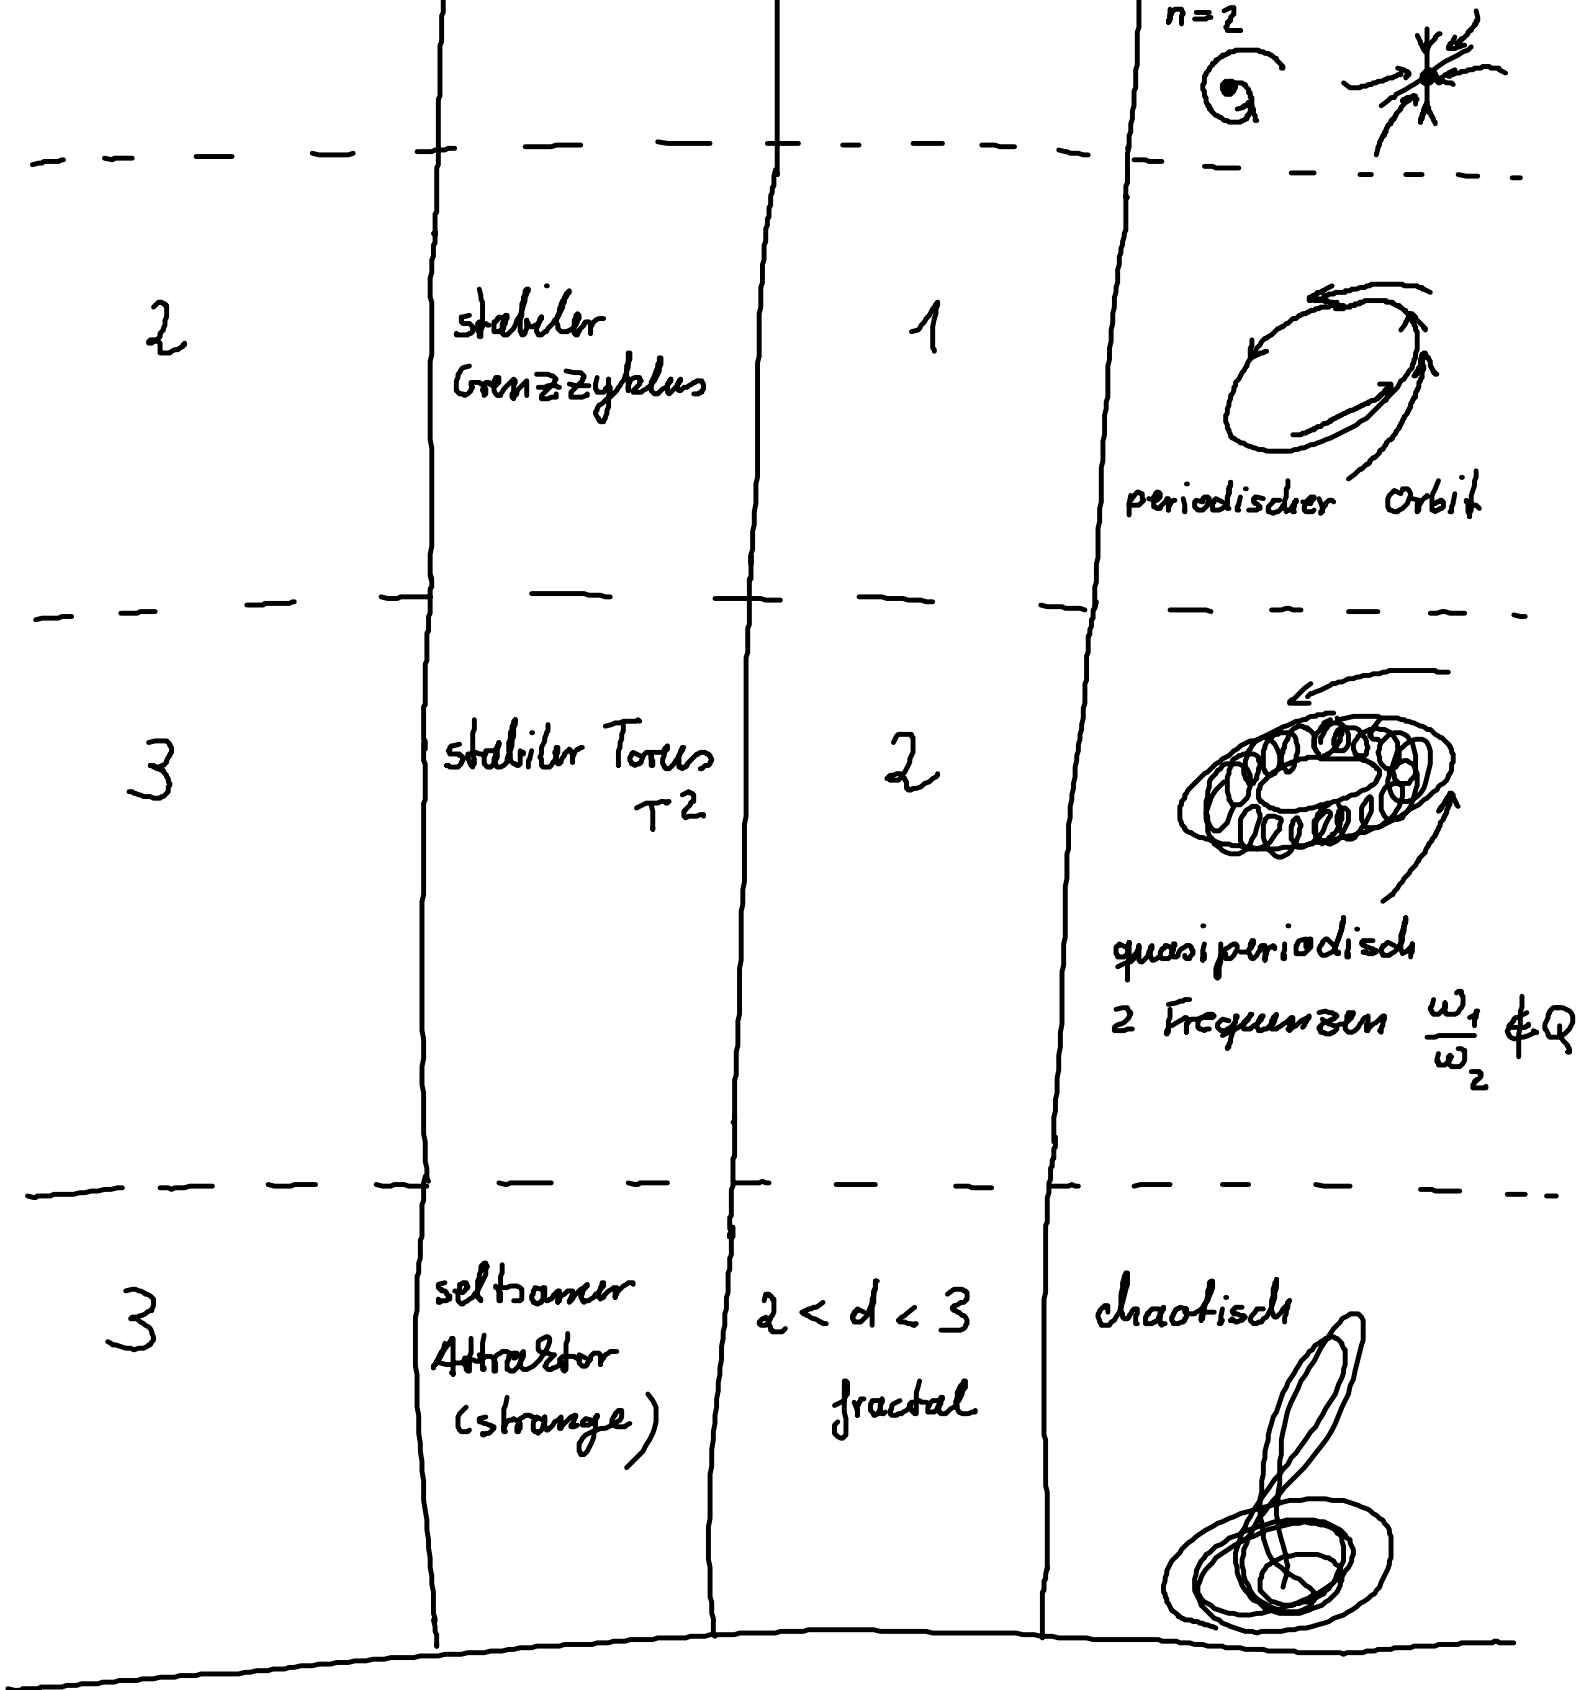 n=2
2
stabiler
Grenzzyklus
1
periodischer Orbit
3
stabiler Torus
T²
2
quasiperiodisch
2 Frequenzen ω₁/ω₂ ∉ Q
3
seltsamer
Attraktor
(strange)
2 < d < 3
fractal
chaotisch